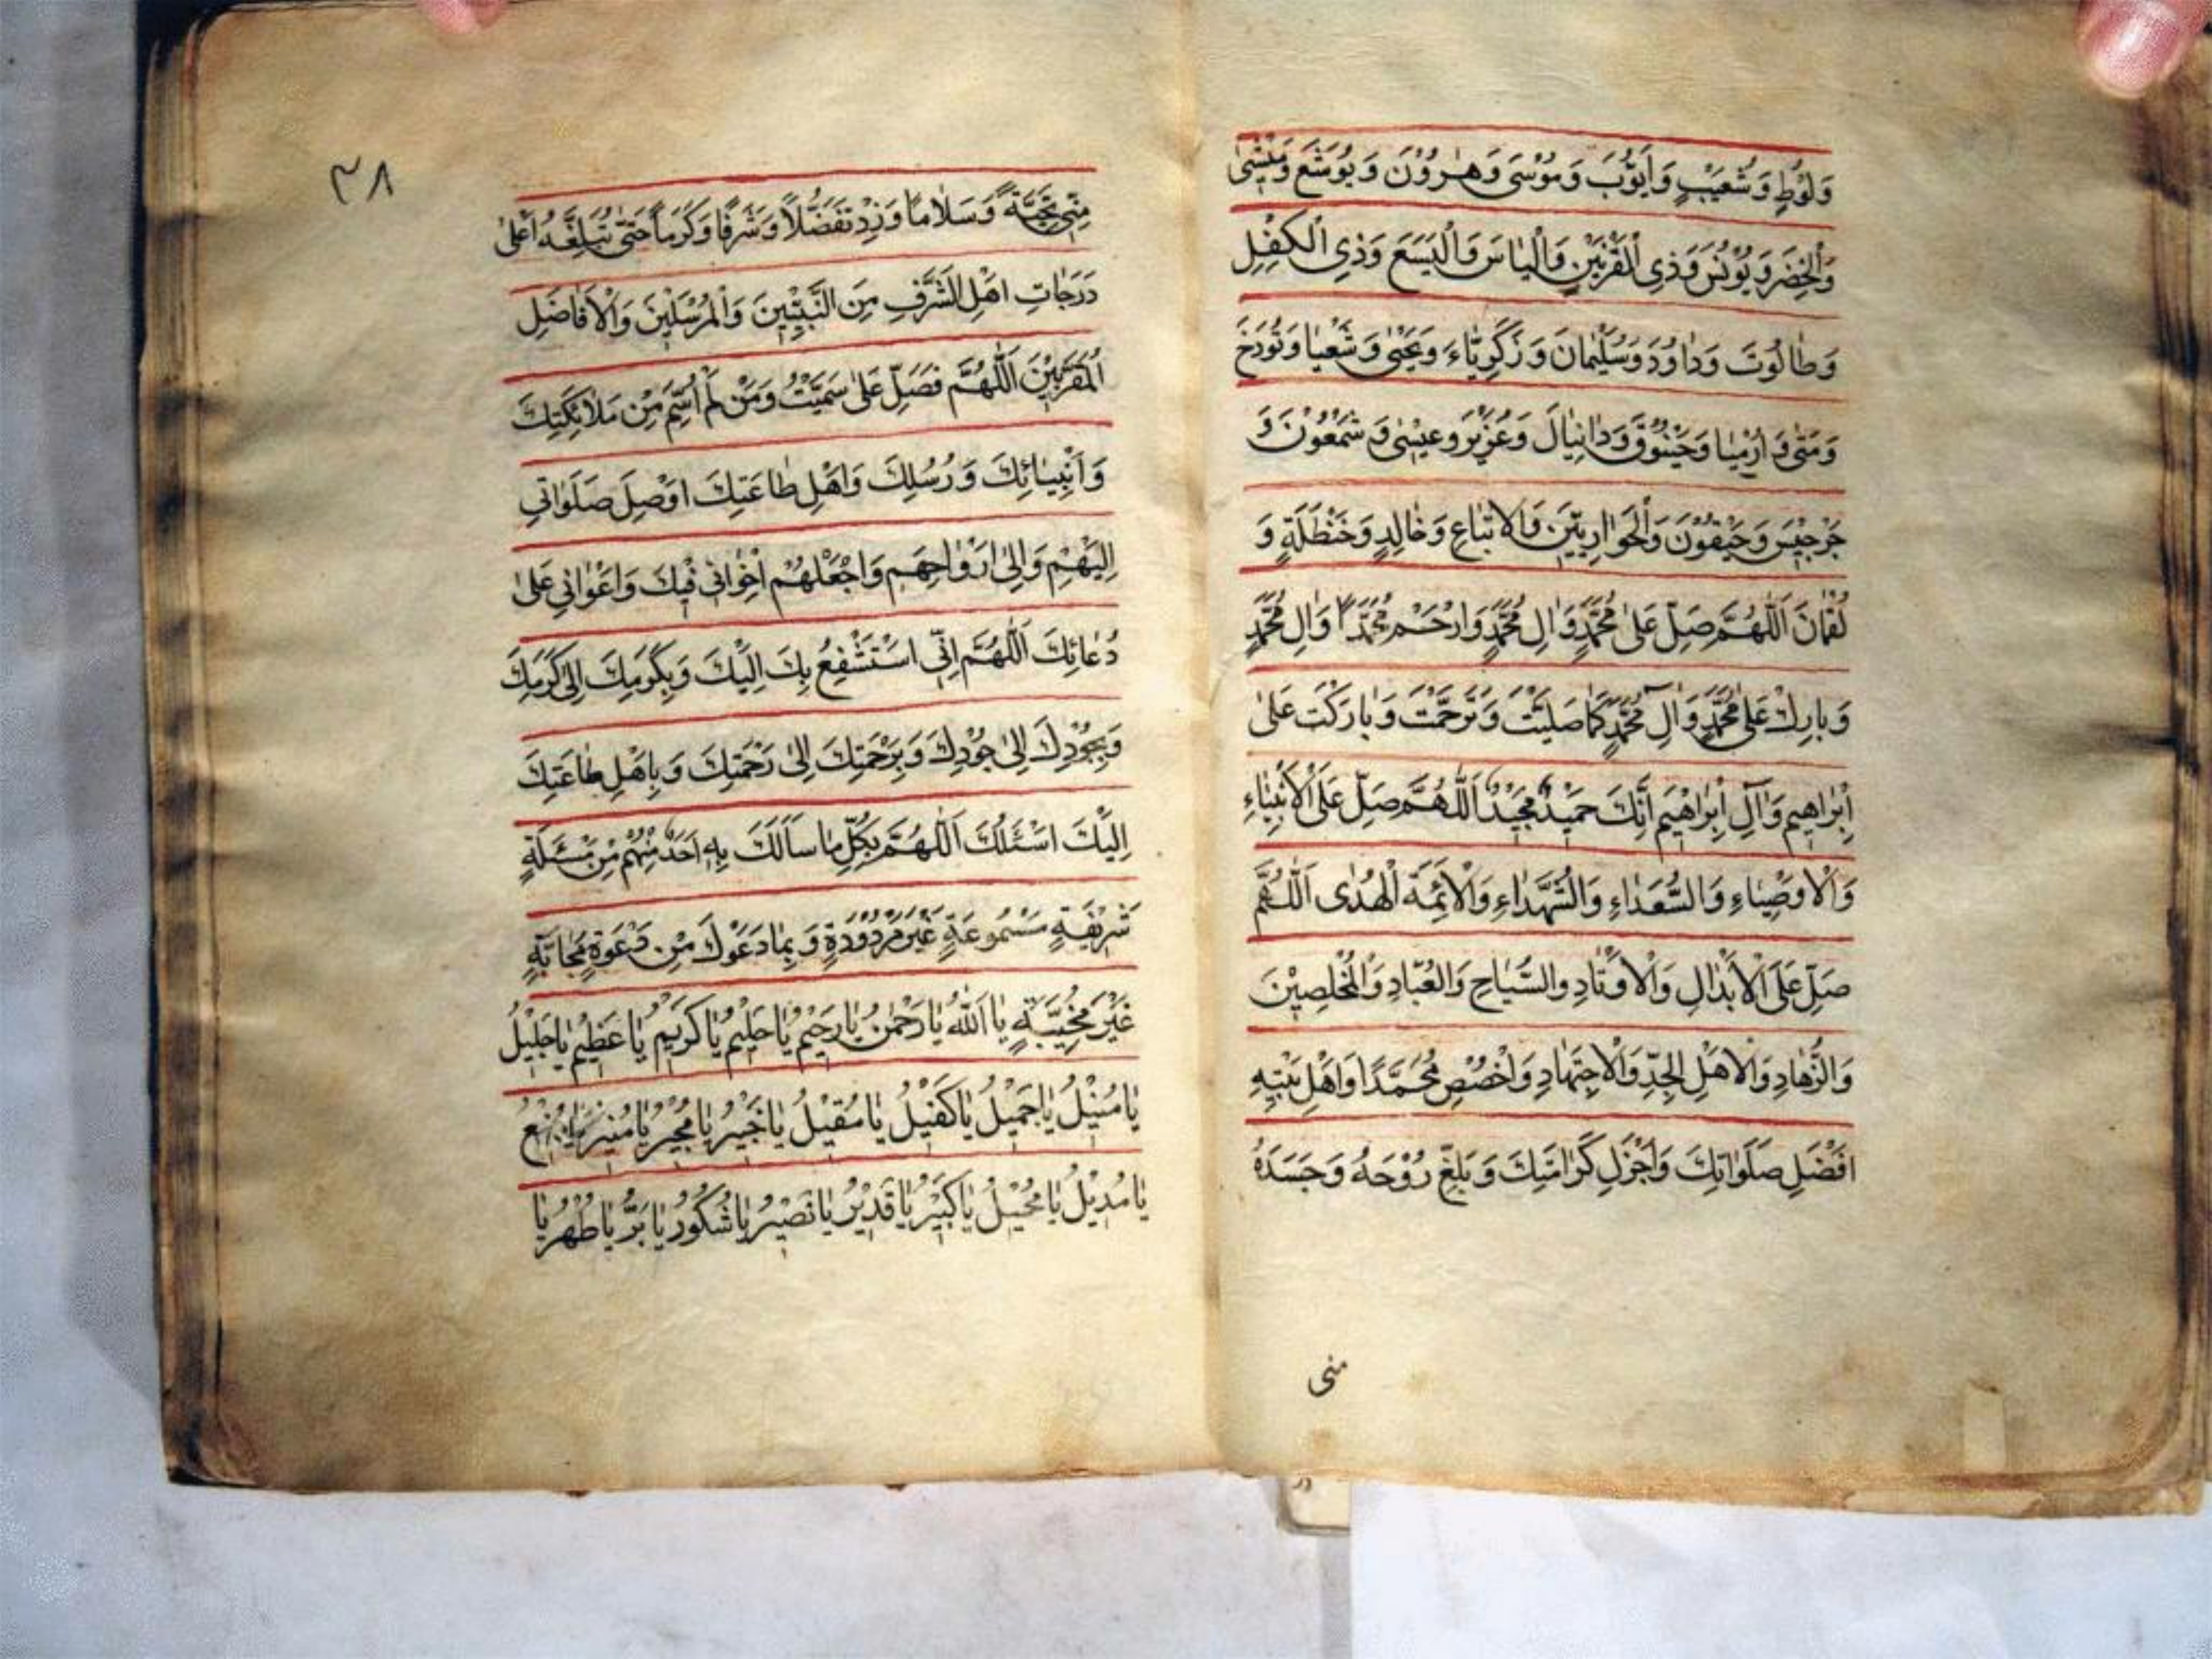 وَلُوْطٍ وَشُعَيْبٍ وَاَيُّوْبَ وَمُوْسٰى وَهٰرُوْنَ وَيُوْشَعَ وَمِيْشٰى
وَالْخِضَرَ وَيُوْنُسَ وَذِى الْقَرْنَيْنِ وَالْيٰاسَ وَالْيَسَعَ وَذِى الْكِفْلِ
وَطٰالُوتَ وَدٰاوُدَ وَسُلَيْمٰانَ وَزَكَرِيّٰاءَ وَيَحْيٰى وَشَعْيٰا وَتُورَخَ
وَمَتّٰى وَاَرْمِيٰا وَحَيْقُوْقَ وَدٰانِيٰالَ وَعُزَيْرٍ وَعِيْسٰى وَشَمْعُوْنَ وَ
جَرْجِيْسَ وَحَيْقُوْنَ وَالْحَوٰارِيّيْنَ وَالاتْبٰاعِ وَخٰالِدٍ وَحَنْظَلَةٍ وَ
لُقْمٰانَ اَللّٰهُمَّ صَلِّ عَلٰى مُحَمَّدٍ وَاٰلِ مُحَمَّدٍ وَارْحَمْ مُحَمَّدًا وَاٰلِ مُحَمَّدٍ
وَبٰارِكْ عَلٰى مُحَمَّدٍ وَاٰلِ مُحَمَّدٍ كَمٰا صَلَيْتَ وَتَرَحَّمْتَ وَبٰارَكْتَ عَلٰى
اِبْرٰاهِيمِ وَاٰلِ اِبْرٰاهِيْمِ اِنَّكَ حَمِيْدٌ مَجِيْدٌ اَللّٰهُمَّ صَلِّ عَلَى الْاَنْبِيٰاءِ
وَالْاَوْصِيٰاءِ وَالسُّعَدٰاءِ وَالشُّهَدٰاءِ وَالْاَئِمَّةَ الْهُدٰى اَللّٰهُمَّ
صَلِّ عَلَى الْاَبْدٰالِ وَالْاَوْتٰادِ وَالسُّيّٰاحِ وَالْعُبّٰادِ وَالْمُخْلِصِيْنَ
وَالزُّهّٰادِ وَالاَهْلِ الْجِدِّ وَالْاِجْتِهٰادِ وَاخْصُصْ مُحَمَّدًا وَاَهْلِ بَيْتِهِ
اَفْضَلِ صَلَوٰاتِكَ وَاَجْزَلِ كَرٰامَتِكَ وَبَلِّغْ رُوْحَهُ وَجَسَدَهُ
منى
٣٨
مِنّٖى تَحِيَّةً وَسَلٰاماً وَزِدْ تَفَضُّلاً وَشَرَفًا وَكَرَمًا حَتّٰى تُبَلِغَّهُ اَعْلٰى
دَرَجٰاتِ اهْلِ الشَّرَفِ مِنَ النَّبِيّيْنَ وَالْمُرْسَلِيْنَ وَالْاَفٰاضِلِ
اَلْمُقَرَّبِيْنَ اَللّٰهُمَّ فَصَلِّ عَلٰى سَمَيْتُ وَمَنْ لَمْ اُسَمِّ مِنْ مَلٰائِكَتِكَ
وَاَنْبِيٰائِكَ وَرُسُلِكَ وَاَهْلِ طٰاعَتِكَ اوْصِلَ صَلَوٰاتِى
اِلَيْهِمْ وَاِلٰى اَرْوٰاحِهِمْ وَاجْعَلْهُمْ اِخْوٰانِى فِيْكَ وَاَعْوٰانِى عَلٰى
دُعٰائِكَ اَللّٰهُمَّ اِنّٖى اسْتَشْفِعُ بِكَ اِلَيْكَ وَبِكَرَمِكَ اِلٰى كَرَمِكَ
وَبِجُوْدِكَ اِلٰى جُوْدِكَ وَبِرَحْمَتِكَ اِلٰى رَحْمَتِكَ وَبِاَهْلِ طٰاعَتِكَ
اِلَيْكَ اسْئَلُكَ اَللّٰهُمَّ بِكُلِّ مٰا سَأَلَكَ بِهِ اَحَدٌ مِنْهُمْ مِنْ مَسْئَلَةٍ
شَرِيْفَةٍ مَسْمُوعَةٍ غَيْرِ مَرْدُوْدَةٍ وَبِمٰا دَعَوْكَ مِنْ دَعْوَةٍ مُجٰابَةٍ
غَيْرَ مُخَيَّبَةٍ يٰا اَللّٰهُ يٰا رَحْمٰنُ يٰا رَحِيْمُ يٰا حَلِيْمُ يٰا كَرِيْمُ يٰا عَظِيْمُ يٰا جَلِيْلُ
يٰا مُنِيْلُ يٰا جَمِيْلُ يٰا كَفِيْلُ يٰا مُقِيْلُ يٰا خَبِيْرُ يٰا مُجِيْرُ يٰا مُنِيْرُ
يٰا مُدِيْلُ يٰا مُحِيْلُ يٰا كَبِيْرُ يٰا قَدِيْرُ يٰا نَصِيْرُ يٰا شَكُوْرُ يٰا بَرُّ يٰا طُهْرُ يٰا